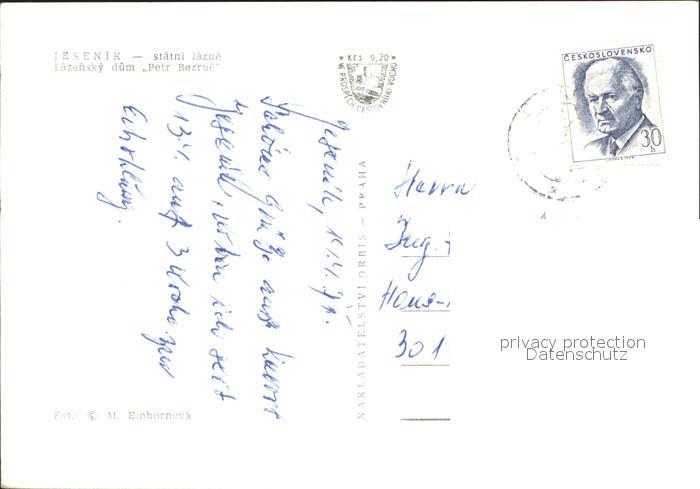 JESENÍK — státní lázně
Lázeňský dům „Petr Bezruč"
Kčs 0,20
VE PROSPĚCH CESTOVNÍHO RUCHU
ČESKOSLOVENSKO
30 h
Jeseník, 14.4.71.
Grüße aus Kurort
Jeseník, wo bin ich seit
13.4. auf 3 Wochen zur
Erholung.
NAKLADATELSTVÍ ORBIS — PRAHA
Herrn
Ing.
Hans-
301
privacy protection
Datenschutz
Foto © M. Einhornová